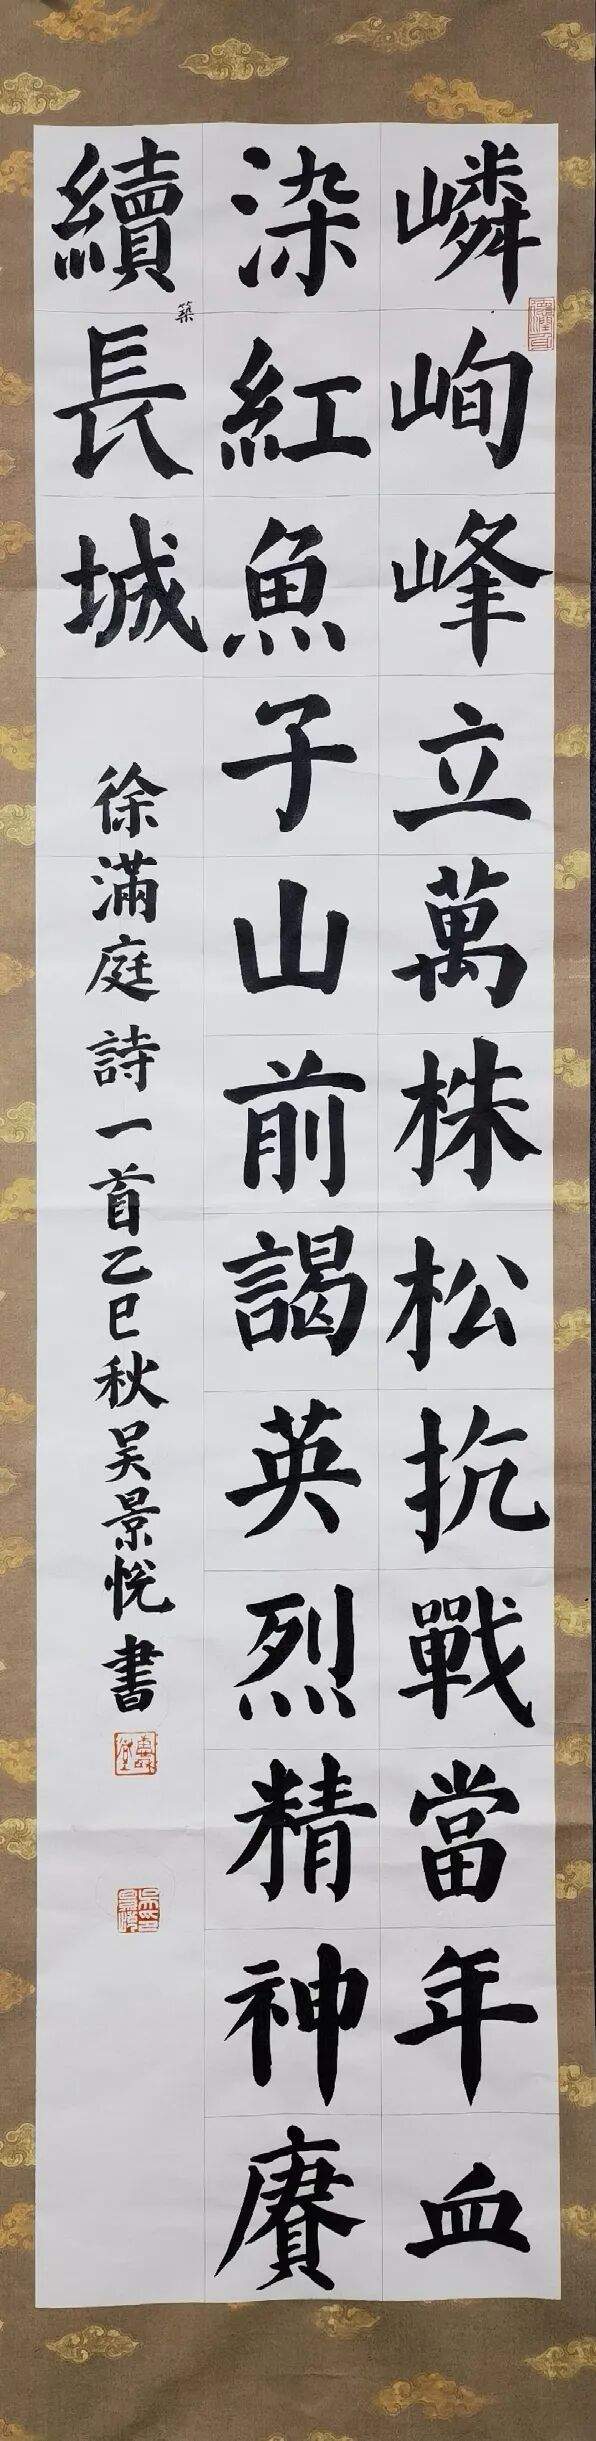 嶙峋峰立萬株松抗戰當年血
染紅魚子山前謁英烈精神賡
續築長城
徐滿庭詩一首乙巳秋吴景悅書